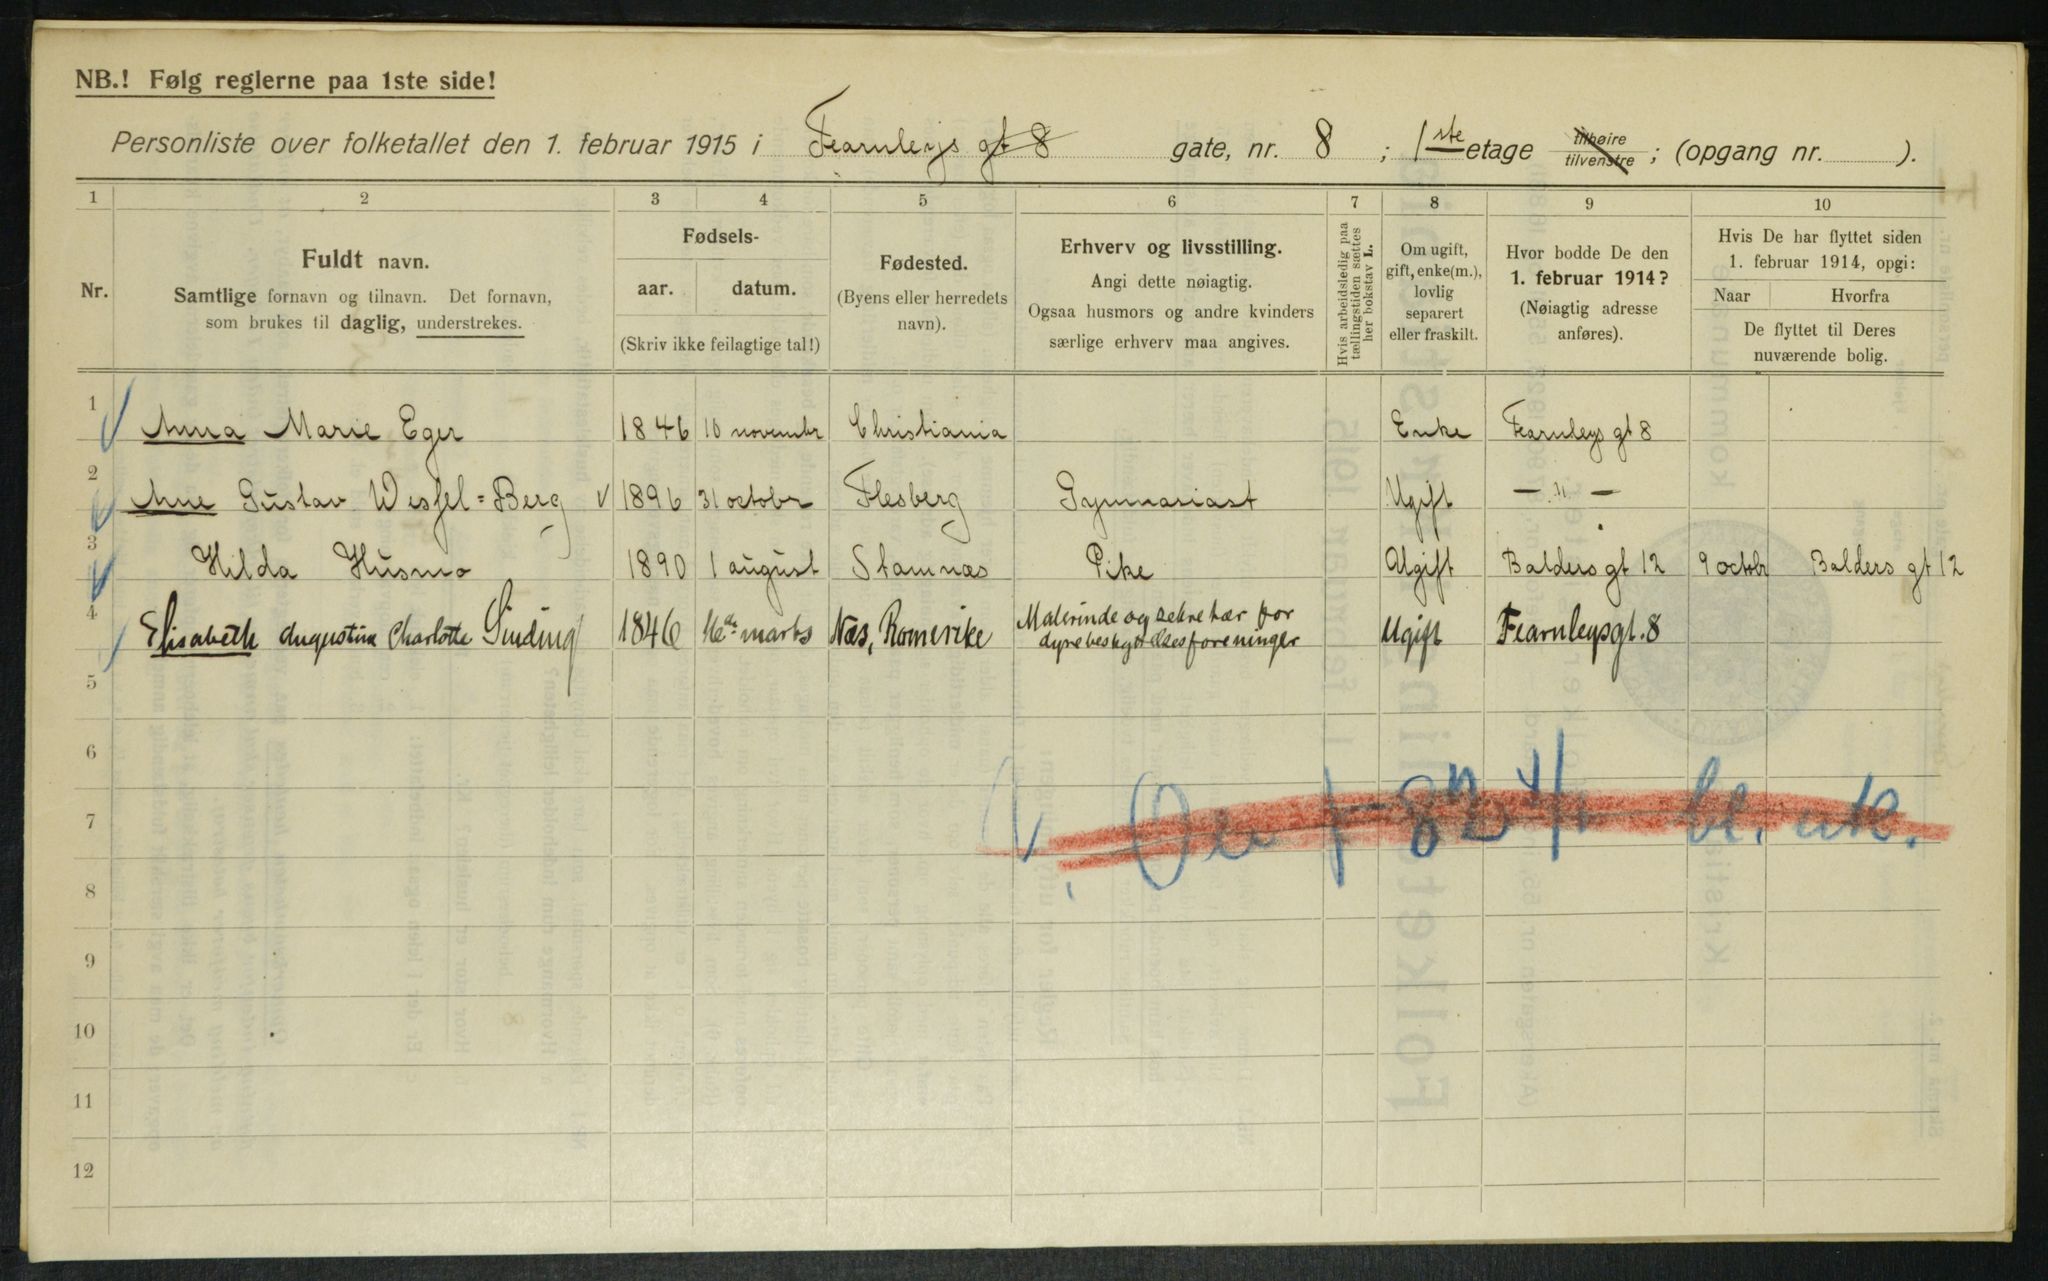 NB.! Følg reglerne paa 1ste side!
Personliste over folketallet den 1. februar 1915 i Fearnleys gt 8 gate, nr. 8 ; 1ste etage tilhøire tilvenstre ; (opgang nr. ).
1 2 3 4 5 6 7 8 9 10
Nr.
Fuldt navn.
Samtlige fornavn og tilnavn. Det fornavn,
som brukes til daglig, understrekes.
Fødsels-
aar. datum.
(Skriv ikke feilagtige tal!)
Fødested.
(Byens eller herredets
navn).
Erhverv og livsstilling.
Angi dette nøiagtig.
Ogsaa husmors og andre kvinders
særlige erhverv maa angives.
Hvis arbeidsledig paa
tællingstiden sættes
her bokstav L.
Om ugift,
gift, enke(m.),
lovlig
separert
eller fraskilt.
Hvor bodde De den
1. februar 1914?
(Nøiagtig adresse
anføres).
Hvis De har flyttet siden
1. februar 1914, opgi:
Naar Hvorfra
De flyttet til Deres
nuværende bolig.
1 Anna Marie Eger 1846 10 novembr Christiania Enke Fearnleys gt 8
2 Arne Gustav Wesfel=Berg 1896 31 octobr Flesberg Gymnasiast Ugift — " —
3 Hilda Husmo 1890 1 august Stamnæs Pike Ugift Balders gt 12 9 octobr Balders gt 12
4 Elisabeth Augustina Charlotte Sinding 1846 16de marts Næs, Romerike Malerinde og sekretær for
dyrebeskyttelsesforeninger Ugift Fearnleysgt. 8
5
6
7
8
9
10
11
12